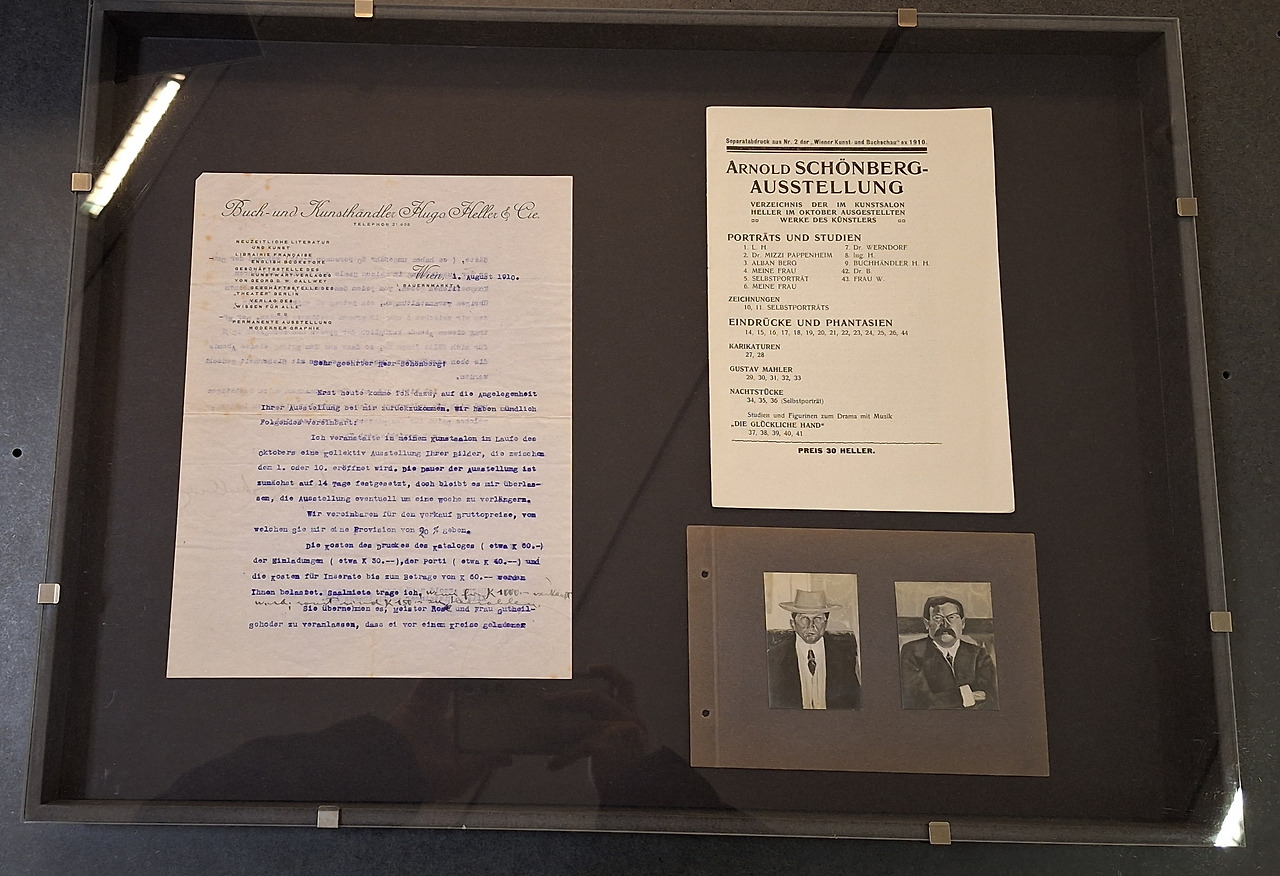 Buch- und Kunsthändler Hugo Heller & Cie.
TELEPHON 21 608
NEUZEITLICHE LITERATUR
UND KUNST
LIBRAIRIE FRANÇAISE
ENGLISH BOOKSTORE
GESCHÄFTSSTELLE DES
KUNSTWARTVERLAGES
VON GEORG D. W. CALLWEY
GESCHÄFTSSTELLE DES
„THEATER“ BERLIN
VERLAG DES
„WISSEN FÜR ALLE“
PERMANENTE AUSSTELLUNG
MODERNER GRAPHIK
Wien, 1. August 1910.
I. BAUERNMARKT 3
Sehr geehrter Herr Schönberg!
Erst heute komme ich dazu, auf die Angelegenheit
Ihrer Ausstellung bei mir zurückzukommen. Wir haben mündlich
Folgendes vereinbart:
Ich veranstalte in meinem Kunstsalon im Laufe des
Oktobers eine Kollektiv Ausstellung Ihrer Bilder, die zwischen
dem 1. oder 10. eröffnet wird. Die Dauer der Ausstellung ist
zunächst auf 14 Tage festgesetzt, doch bleibt es mir überlas-
sen, die Ausstellung eventuell um eine Woche zu verlängern.
Wir vereinbaren für den Verkauf Bruttopreise, von
welchen sie mir eine Provision von 20 % geben.
Die Kosten des Druckes des Kataloges ( etwa K 80.-)
der Einladungen ( etwa K 30.--), der Porti ( etwa K 40.--) und
die Kosten für Inserate bis zum Betrage von K 60.-- werden
Ihnen belastet. Saalmiete trage ich, wenn für K 1000.- verkauft
wird; sonst sind K 150.-
Sie übernehmen es, Meister Rosé und Frau Gutheil-
Schoder zu veranlassen, dass ei vor einem Kreise geladener
Separatabdruck aus Nr. 2 der „Wiener Kunst- und Buchschau“ ex 1910.
ARNOLD SCHÖNBERG-
AUSSTELLUNG
VERZEICHNIS DER IM KUNSTSALON
HELLER IM OKTOBER AUSGESTELLTEN
WERKE DES KÜNSTLERS
PORTRÄTS UND STUDIEN
1. L. H.
2. Dr. MIZZI PAPPENHEIM
3. ALBAN BERG
4. MEINE FRAU
5. SELBSTPORTRÄT
6. MEINE FRAU
7. Dr. WERNDORF
8. Ing. H.
9. BUCHHÄNDLER H. H.
42. Dr. B.
43. FRAU W.
ZEICHNUNGEN
10, 11. SELBSTPORTRÄTS
EINDRÜCKE UND PHANTASIEN
14, 15, 16, 17, 18, 19, 20, 21, 22, 23, 24, 25, 26, 44
KARIKATUREN
27, 28
GUSTAV MAHLER
29, 30, 31, 32, 33
NACHTSTÜCKE
34, 35, 36 (Selbstporträt)
Studien und Figurinen zum Drama mit Musik
„DIE GLÜCKLICHE HAND“
37, 38, 39, 40, 41
PREIS 30 HELLER.